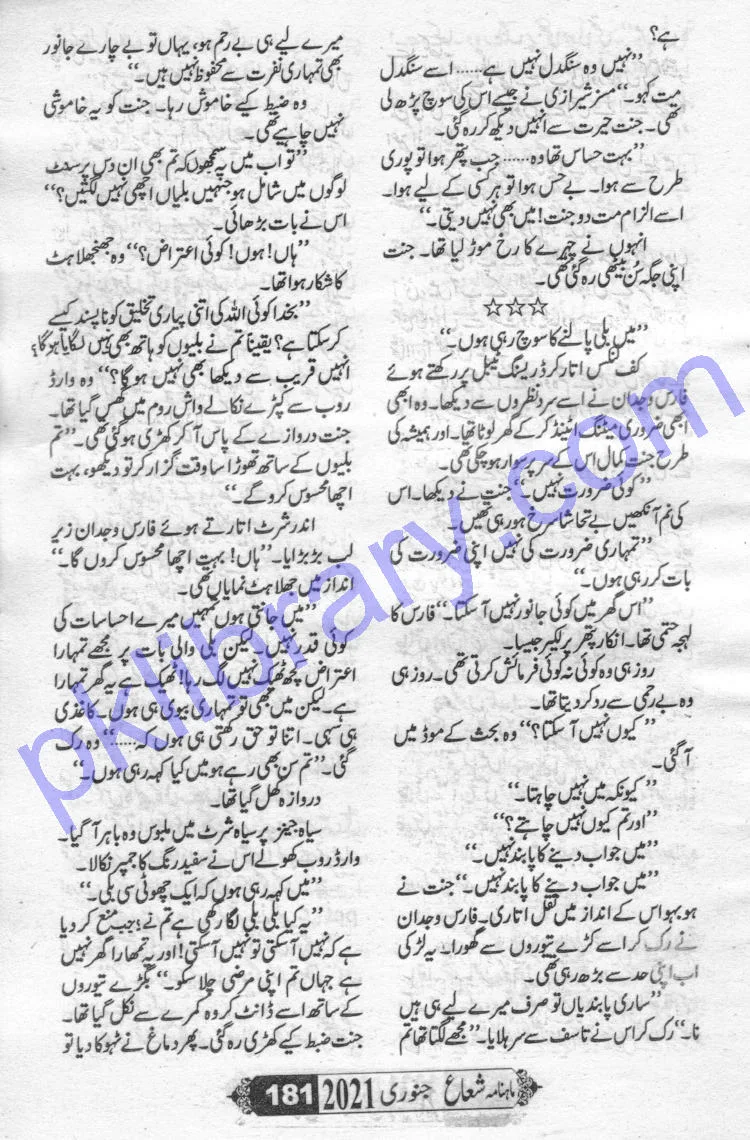 ہے؟
”نہیں وہ سنگدل نہیں ہے...... اسے سنگدل
میت کہو۔“ مسز شیرازی نے جیسے اس کی سوچ پڑھ لی
تھی۔ جنت حیرت سے انہیں دیکھ کر رہ گئی۔
”بہت حساس تھا وہ...... جب پتھر ہوا تو پوری
طرح سے ہوا۔ بے حس ہوا تو ہر کسی کے لیے ہوا۔
اسے الزام مت دو جنت! میں بھی نہیں دیتی۔“
انہوں نے چہرے کا رخ موڑ لیا تھا۔ جنت
اپنی جگہ سُن بیٹھی رہ گئی تھی۔
☆☆☆
”میں بلی پالنے کا سوچ رہی ہوں۔“
کف لنکس اتار کر ڈریسنگ ٹیبل پر رکھتے ہوئے
فارس وجدان نے اسے سرد نظروں سے دیکھا۔ وہ ابھی
ابھی ضروری میٹنگ اٹینڈ کر کے گھر لوٹا تھا۔ اور ہمیشہ کی
طرح جنت کمال اس کے سر پر سوار ہو چکی تھی۔
”کوئی ضرورت نہیں۔“ جنت نے دیکھا۔ اس
کی نم آنکھیں بے تحاشا سرخ ہو رہی تھیں۔
”تمہاری ضرورت کی نہیں اپنی ضرورت کی
بات کر رہی ہوں۔“
”اس گھر میں کوئی جانور نہیں آ سکتا۔“ فارس کا
لہجہ حتمی تھا۔ انکار پتھر پر لکیر جیسا۔
روز ہی وہ کوئی نہ کوئی فرمائش کرتی تھی۔ روز ہی
وہ بے رحمی سے رد کر دیتا تھا۔
”کیوں نہیں آ سکتا؟“ وہ بحث کے موڈ میں
آ گئی۔
”کیونکہ میں نہیں چاہتا۔“
”اور تم کیوں نہیں چاہتے؟“
”میں جواب دینے کا پابند نہیں۔“
”میں جواب دینے کا پابند نہیں۔“ جنت نے
ہو بہو اس کے انداز میں نقل اتاری۔ فارس وجدان
نے رک کر اسے کڑے تیوروں سے گھورا۔ یہ لڑکی
اب اپنی حد سے بڑھ رہی تھی۔
”ساری پابندیاں تو صرف میرے لیے ہی ہیں
نا۔“ رک کر اس نے تاسف سے سر ہلایا۔ ”مجھے لگتا تھا تم
میرے لیے ہی بے رحم ہو، یہاں تو بے چارے جانور
بھی تمہاری نفرت سے محفوظ نہیں ہیں۔“
وہ ضبط کیے خاموش رہا۔ جنت کو یہ خاموشی
نہیں چاہیے تھی۔
”تو اب میں یہ سمجھوں کہ تم بھی ان دس پرسنٹ
لوگوں میں شامل ہو جنہیں بلیاں اچھی نہیں لگتیں؟“
اس نے بات بڑھائی۔
”ہاں! ہوں! کوئی اعتراض؟“ وہ جھنجھلاہٹ
کا شکار ہوا تھا۔
”بخدا کوئی اللہ کی اتنی پیاری تخلیق کو ناپسند کیسے
کر سکتا ہے؟ یقیناً تم نے بلیوں کو ہاتھ بھی نہیں لگایا ہو گا؟
انہیں قریب سے دیکھا بھی نہیں ہو گا؟“ وہ وارڈ
روب سے کپڑے نکالے واش روم میں گھس گیا تھا۔
جنت دروازے کے پاس آ کر کھڑی ہو گئی تھی۔ ”تم
بلیوں کے ساتھ تھوڑا سا وقت گزار کر تو دیکھو، بہت
اچھا محسوس کرو گے۔“
اندر شرٹ اتارتے ہوئے فارس وجدان زیر
لب بڑبڑایا۔ ”ہاں! بہت اچھا محسوس کروں گا۔“
انداز میں جھلاہٹ نمایاں تھی۔
”میں جانتی ہوں تمہیں میرے احساسات کی
کوئی قدر نہیں۔ لیکن بلی والی بات پر مجھے تمہارا
اعتراض کچھ ٹھیک نہیں لگ رہا! ٹھیک ہے یہ گھر تمہارا
ہے۔ لیکن میں بھی تو تمہاری بیوی ہی ہوں۔ کاغذی
ہی سہی۔ اتنا تو حق رکھتی ہی ہوں کہ......“ وہ رک
گئی۔ ”تم سن بھی رہے ہو میں کیا کہہ رہی ہوں۔“
دروازہ کھل گیا تھا۔
سیاہ جینز پر سیاہ شرٹ میں ملبوس وہ باہر آ گیا۔
وارڈ روب کھولے اس نے سفید رنگ کا جمپر نکالا۔
”میں کہہ رہی ہوں کہ ایک چھوٹی سی بلی۔“
”یہ کیا بلی بلی لگا رکھی ہے تم نے؟ جب منع کر دیا
ہے کہ نہیں آ سکتی تو نہیں آ سکتی! اور یہ تمہارا گھر نہیں
ہے جہاں تم اپنی مرضی چلا سکو۔“ بگڑے تیوروں
کے ساتھ اسے ڈانٹ کر وہ کمرے سے نکل گیا تھا۔
جنت ضبط کیے کھڑی رہ گئی۔ پھر دماغ نے ٹہوکا دیا تو
ماہنامہ شعاع جنوری 2021 181
pklibrary.com